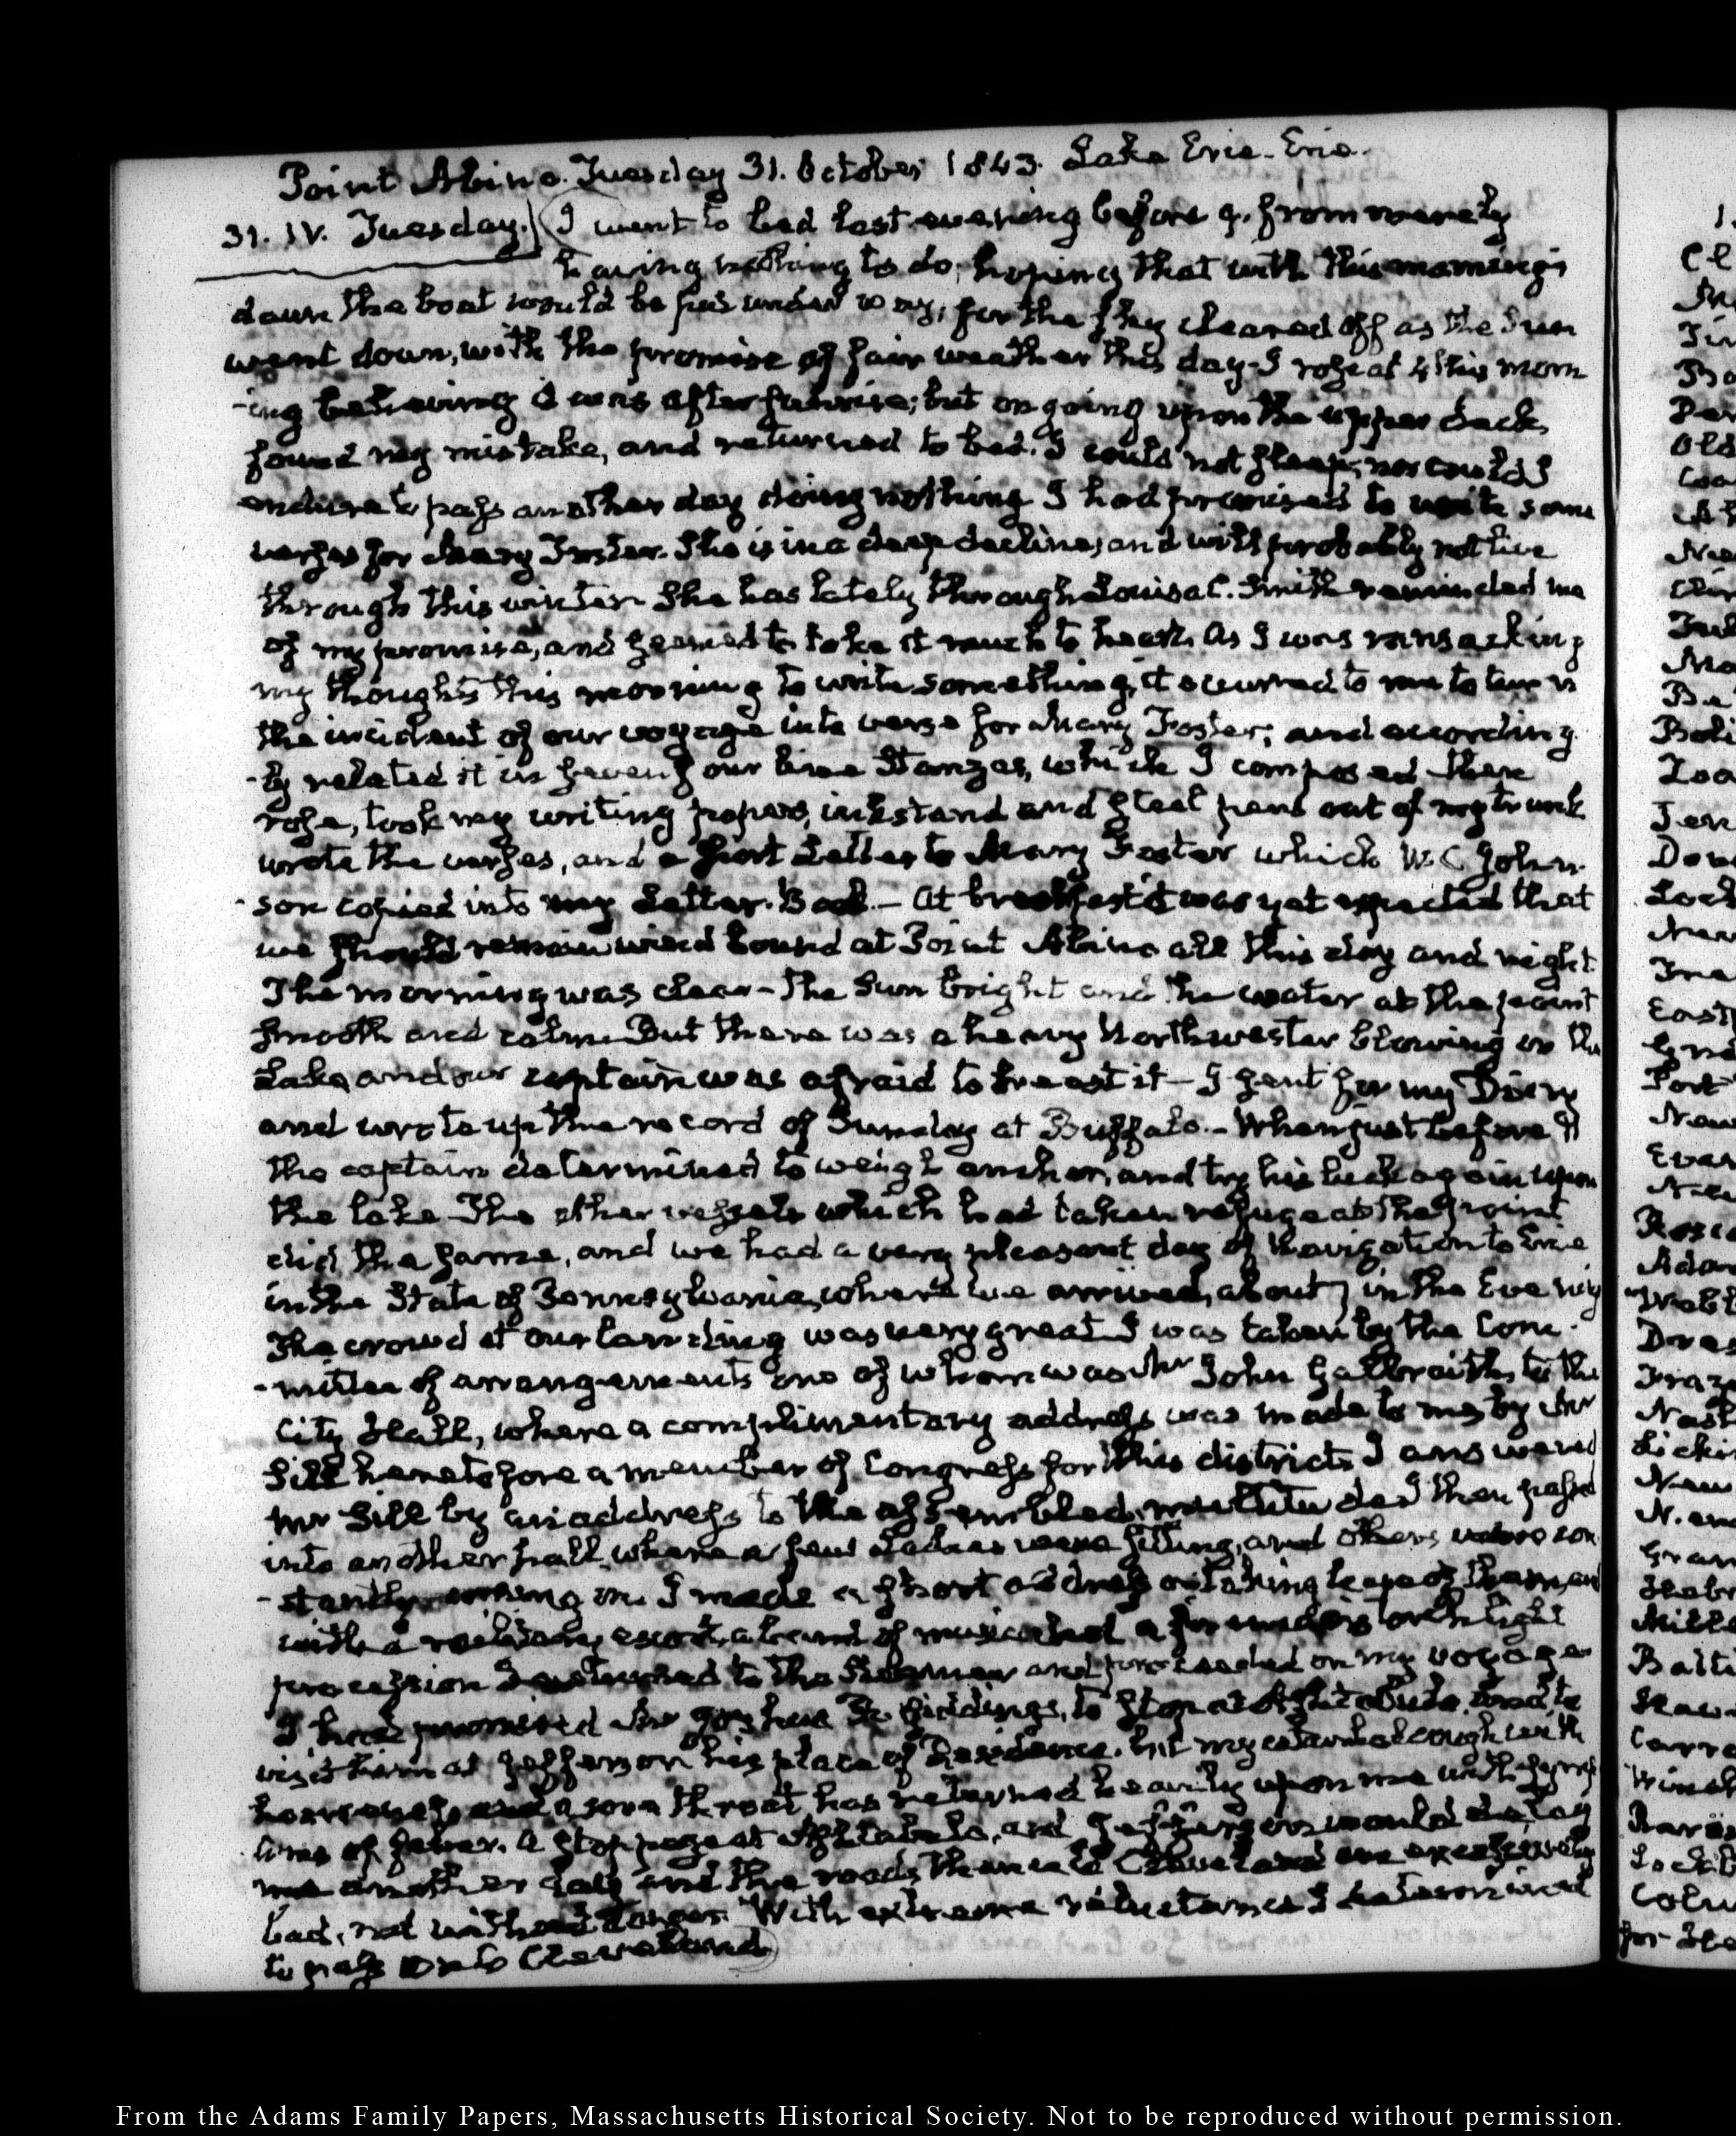 Point Abino. Tuesday 31. October 1843. Lake Erie - Erie.
31. IV. Tuesday. I went to bed last evening before 9. from merely
having nothing to do; hoping that with this morning's
dawn the boat would be under way; for the sky cleared off as the Sun
went down, with the promise of fair weather this day - I rose at 4 this morn
-ing believing it was after sunrise; but on going upon the upper deck,
found my mistake, and returned to bed. I could not sleep; nor could I
endure to pass another day doing nothing I had promised to write some
verses for Mary Foster. She is in a deep decline, and will probably not live
through this winter. She has lately through Louisa C. Smith reminded me
of my promise, and seemed to take it much to heart. As I was ransacking
my thoughts this morning to write something, it occurred to me to turn
the incident of our voyage into verse for Mary Foster; and according
-ly related it in seven four line Stanzas, which I composed then
rose, took my writing papers, inkstand and steel pens out of my trunk
wrote the verses, and a short Letter to Mary Foster which W. C. John-
son copied into my Letter-Book - At breakfast it was yet expected that
we should remain wind bound at Point Abino all this day and night
The morning was clear - The Sun bright and the water at the point
smooth and calm. But there was a heavy Northwester blowing on the
Lake, and our captain was afraid to breast it - I sent for my Diary
and wrote up the record of Sunday at Buffalo. - When just before 9
the captain determined to weigh anchor, and try his luck again upon
the lake The other vessels which had taken refuge at the point
did the same, and we had a very pleasant day of navigation to Erie
in the State of Pennsylvania, where we arrived, about 7 in the Evening
The crowd at our landing was very great I was taken by the Com-
-mittee of arrangements one of whom was Mr John Galbraith, to the
City Hall, where a complimentary address was made to me by Mr
Sill heretofore a member of Congress for this district. I answered
Mr Sill by an address to the assembled multitude I then passed
into another hall where a few Ladies were sitting, and others were con
-stantly coming in. I made a short address on taking leave of them, and
with a military escort, a band of music and a torch light
procession I returned to the Steamer and proceeded on my voyage
I had promised Mr Joshua R. Giddings, to stop at Ashtabula, and to
visit him at Jefferson his place of Residence. but my catarrhal cough with
hoarseness, and a sore throat, has returned heavily upon me with symp
toms of fever. A stoppage at Ashtabula, and Jefferson would delay
me another day and the roads thence to Cleveland are excessively
bad, not without danger. With extreme reluctance I determined
to pass on to Cleveland
Cl
Old
East
Port
for
From the Adams Family Papers, Massachusetts Historical Society. Not to be reproduced without permission.